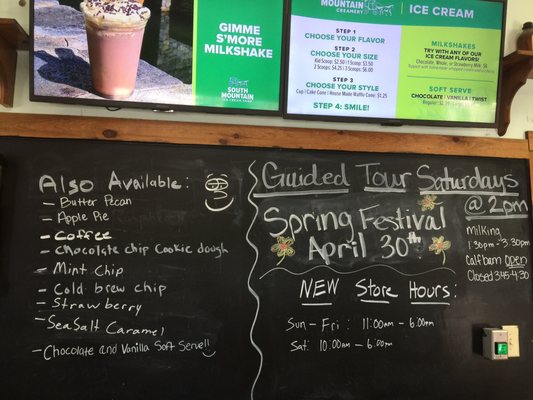 GIMME
S'MORE
MILKSHAKE
SOUTH
MOUNTAIN
MOUNTAIN
CREAMERY
ICE CREAM
STEP 1
CHOOSE YOUR FLAVOR
STEP 2
CHOOSE YOUR SIZE
Kid Scoop: $2.50 1 Scoop: $3.50
2 Scoops: $4.25 3 Scoops: $6.00
STEP 3
CHOOSE YOUR STYLE
Cup | Cake Cone | House Made Waffle Cone: $1.25
STEP 4: SMILE!
MILKSHAKES
TRY WITH ANY OF OUR
ICE CREAM FLAVORS!
Chocolate, Whole, or Strawberry Milk: $6
SOFT SERVE
CHOCOLATE | VANILLA | TWIST
Also Available:
- Butter Pecan
- Apple Pie
- Coffee
- Chocolate chip Cookie dough
- Mint Chip
- Cold brew chip
- Strawberry
- Sea Salt Caramel
- Chocolate and Vanilla Soft Serve!!
Guided Tour Saturdays
@ 2pm
Spring Festival
April 30th
Milking
1:30pm - 3:30pm
Calf barn Open
Closed 3:45-4:30
NEW Store Hours:
Sun - Fri: 11:00am - 6:00pm
Sat: 10:00am - 6:00pm